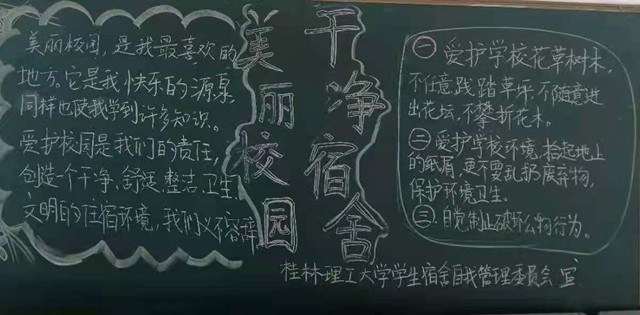 美丽校园，是我最喜欢的
地方。它是我快乐的源泉，
同样也使我学到许多知识。
爱护校园是我们的责任，
创造一个干净、舒适、整洁、卫生、
文明的住宿环境，我们义不容辞
美丽校园
干净宿舍
一 爱护学校花草树木，
不任意践踏草坪，不随意进
出花坛，不攀折花木。
二 爱护学校环境，拾起地上
的纸屑，更不要乱扔废弃物，
保护环境卫生。
三 自觉制止破坏公物行为。
桂林理工大学学生宿舍自我管理委员会 宣